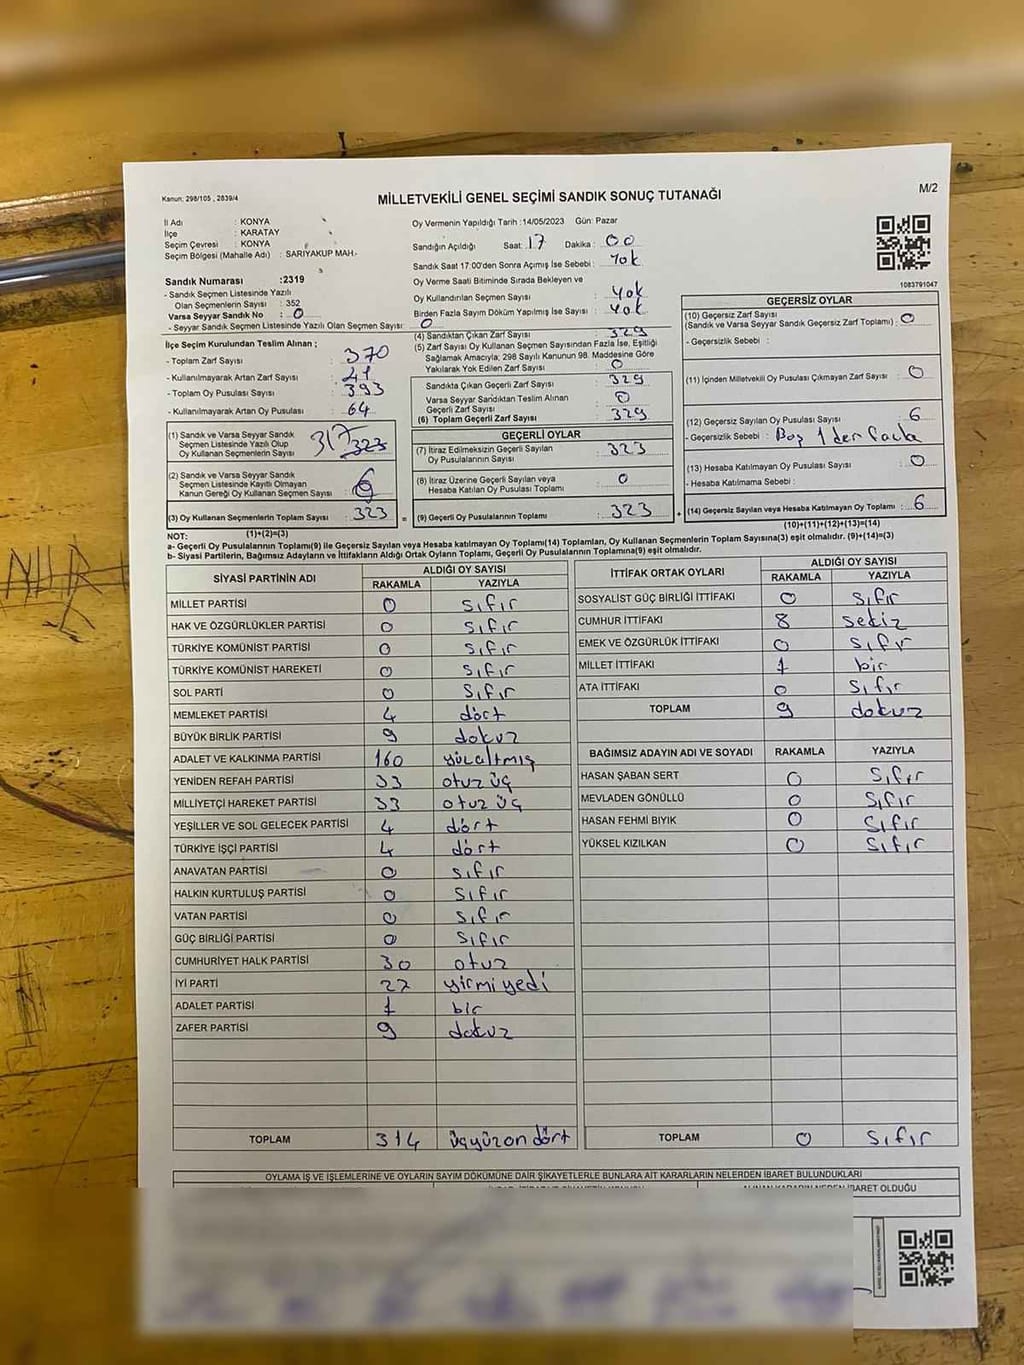 Kanun: 298/105 , 2839/4
MİLLETVEKİLİ GENEL SEÇİMİ SANDIK SONUÇ TUTANAĞI
M/2
İl Adı : KONYA
İlçe : KARATAY
Seçim Çevresi : KONYA
Seçim Bölgesi (Mahalle Adı) : SARIYAKUP MAH.
Sandık Numarası :2319
- Sandık Seçmen Listesinde Yazılı
Olan Seçmenlerin Sayısı : 352
Varsa Seyyar Sandık No : 0
- Seyyar Sandık Seçmen Listesinde Yazılı Olan Seçmen Sayısı: 0
Oy Vermenin Yapıldığı Tarih :14/05/2023 Gün: Pazar
Sandığın Açıldığı Saat: 17 Dakika : 00
Sandık Saat 17:00'den Sonra Açımış İse Sebebi : Yok
Oy Verme Saati Bitiminde Sırada Bekleyen ve
Oy Kullandırılan Seçmen Sayısı : Yok
Birden Fazla Sayım Döküm Yapılmış İse Sayısı : Yok
1083791047
İlçe Seçim Kurulundan Teslim Alınan ;
- Toplam Zarf Sayısı : 370
- Kullanılmayarak Artan Zarf Sayısı : 41
- Toplam Oy Pusulası Sayısı : 393
- Kullanılmayarak Artan Oy Pusulası : 64
(1) Sandık ve Varsa Seyyar Sandık
Seçmen Listesinde Yazılı Olup
Oy Kullanan Seçmenlerin Sayısı : 317 323
(2) Sandık ve Varsa Seyyar Sandık
Seçmen Listesinde Kayıtlı Olmayan
Kanun Gereği Oy Kullanan Seçmen Sayısı : 6
(3) Oy Kullanan Seçmenlerin Toplam Sayısı : 323
(1)+(2)=(3)
(4) Sandıktan Çıkan Zarf Sayısı : 329
(5) Zarf Sayısı Oy Kullanan Seçmen Sayısından Fazla İse, Eşitliği
Sağlamak Amacıyla; 298 Sayılı Kanunun 98. Maddesine Göre
Yakılarak Yok Edilen Zarf Sayısı : 0
Sandıkta Çıkan Geçerli Zarf Sayısı : 329
Varsa Seyyar Sandıktan Teslim Alınan
Geçerli Zarf Sayısı : 0
(6) Toplam Geçerli Zarf Sayısı : 329
GEÇERLİ OYLAR
(7) İtiraz Edilmeksizin Geçerli Sayılan
Oy Pusulalarının Sayısı : 323
(8) İtiraz Üzerine Geçerli Sayılan veya
Hesaba Katılan Oy Pusulası Toplamı : 0
= (9) Geçerli Oy Pusulalarının Toplamı : 323 +
GEÇERSİZ OYLAR
(10) Geçersiz Zarf Sayısı
(Sandık ve Varsa Seyyar Sandık Geçersiz Zarf Toplamı) : 0
- Geçersizlik Sebebi :
(11) İçinden Milletvekili Oy Pusulası Çıkmayan Zarf Sayısı : 0
(12) Geçersiz Sayılan Oy Pusulası Sayısı : 6
- Geçersizlik Sebebi : Boş 1 den fazla
(13) Hesaba Katılmayan Oy Pusulası Sayısı : 0
- Hesaba Katılmama Sebebi :
(14) Geçersiz Sayılan veya Hesaba Katılmayan Oy Toplamı : 6
(10)+(11)+(12)+(13)=(14)
NOT:
a- Geçerli Oy Pusulalarının Toplamı(9) ile Geçersiz Sayılan veya Hesaba katılmayan Oy Toplamı(14) Toplamları, Oy Kullanan Seçmenlerin Toplam Sayısına(3) eşit olmalıdır. (9)+(14)=(3)
b- Siyasi Partilerin, Bağımsız Adayların ve İttifakların Aldığı Ortak Oyların Toplamı, Geçerli Oy Pusulalarının Toplamına(9) eşit olmalıdır.
SİYASİ PARTİNİN ADI ALDIĞI OY SAYISI
RAKAMLA YAZIYLA
MİLLET PARTİSİ 0 sıfır
HAK VE ÖZGÜRLÜKLER PARTİSİ 0 sıfır
TÜRKİYE KOMÜNİST PARTİSİ 0 sıfır
TÜRKİYE KOMÜNİST HAREKETİ 0 sıfır
SOL PARTİ 0 sıfır
MEMLEKET PARTİSİ 4 dört
BÜYÜK BİRLİK PARTİSİ 9 dokuz
ADALET VE KALKINMA PARTİSİ 160 yüzaltmış
YENİDEN REFAH PARTİSİ 33 otuz üç
MİLLİYETÇİ HAREKET PARTİSİ 33 otuz üç
YEŞİLLER VE SOL GELECEK PARTİSİ 4 dört
TÜRKİYE İŞÇİ PARTİSİ 4 dört
ANAVATAN PARTİSİ 0 sıfır
HALKIN KURTULUŞ PARTİSİ 0 sıfır
VATAN PARTİSİ 0 sıfır
GÜÇ BİRLİĞİ PARTİSİ 0 sıfır
CUMHURİYET HALK PARTİSİ 30 otuz
İYİ PARTİ 27 yirmiyedi
ADALET PARTİSİ 1 bir
ZAFER PARTİSİ 9 dokuz
TOPLAM 314 üçyüzondört
İTTİFAK ORTAK OYLARI ALDIĞI OY SAYISI
RAKAMLA YAZIYLA
SOSYALİST GÜÇ BİRLİĞİ İTTİFAKI 0 sıfır
CUMHUR İTTİFAKI 8 sekiz
EMEK VE ÖZGÜRLÜK İTTİFAKI 0 sıfır
MİLLET İTTİFAKI 1 bir
ATA İTTİFAKI 0 sıfır
TOPLAM 9 dokuz
BAĞIMSIZ ADAYIN ADI VE SOYADI RAKAMLA YAZIYLA
HASAN ŞABAN SERT 0 sıfır
MEVLADEN GÖNÜLLÜ 0 sıfır
HASAN FEHMİ BIYIK 0 sıfır
YÜKSEL KIZILKAN 0 sıfır
TOPLAM 0 sıfır
OYLAMA İŞ VE İŞLEMLERİNE VE OYLARIN SAYIM DÖKÜMÜNE DAİR ŞİKAYETLERLE BUNLARA AİT KARARLARIN NELERDEN İBARET BULUNDUKLARI